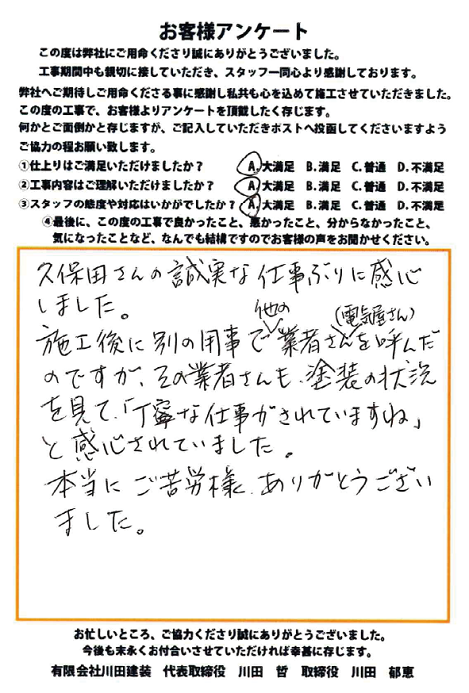 お客様アンケート
この度は弊社にご用命くださり誠にありがとうございました。
工事期間中も親切に接していただき、スタッフ一同心より感謝しております。
弊社へご期待しご用命くださる事に感謝し私共も心を込めて施工させていただきました。
この度の工事で、お客様よりアンケートを頂戴したく存じます。
何かとご面倒かと存じますが、ご記入していただきポストへ投函してくださいますよう
ご協力の程お願い致します。
①仕上りはご満足いただけましたか？ A.大満足 B.満足 C.普通 D.不満足
②工事内容はご理解いただけましたか？ A.大満足 B.満足 C.普通 D.不満足
③スタッフの態度や対応はいかがでしたか？ A.大満足 B.満足 C.普通 D.不満足
④最後に、この度の工事で良かったこと、悪かったこと、分からなかったこと、
気になったことなど、なんでも結構ですのでお客様の声をお聞かせください。
久保田さんの誠実な仕事ぶりに感心
しました。
他の (電気屋さん)
施工後に別の用事で業者さんを呼んだ
のですが、その業者さんも、塗装の状況
を見て、「丁寧な仕事がされていますね」
と感心されていました。
本当にご苦労様、ありがとうござい
ました。
お忙しいところ、ご協力くださり誠にありがとうございました。
今後も末永くお付合いさせていただければ幸甚に存じます。
有限会社川田建装 代表取締役 川田 哲 取締役 川田 郁恵